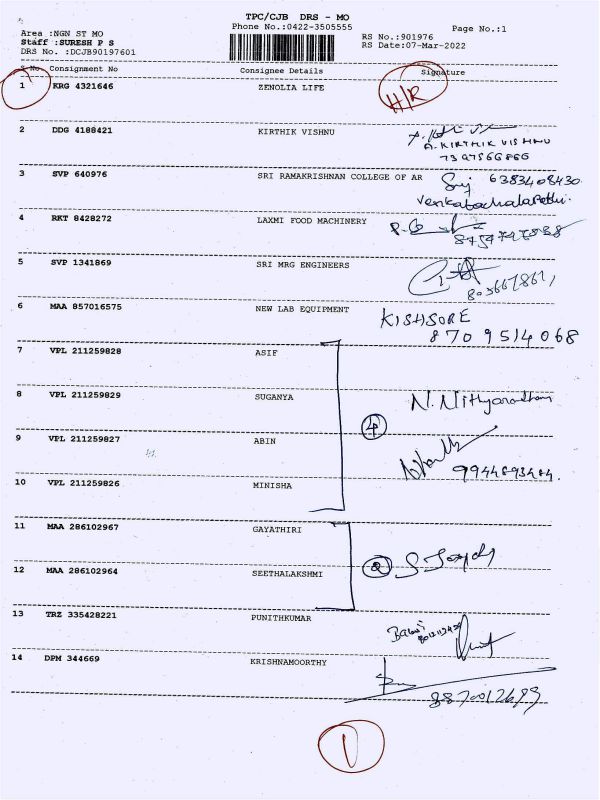 TPC/CJB DRS - MO
Phone No.:0422-3505555
Page No.:1
Area :NGN ST MO
Staff :SURESH P S
DRS No. :DCJB90197601
RS No.:901976
RS Date:07-Mar-2022
S No. Consignment No Consignee Details Signature
1 KRG 4321646 ZENOLIA LIFE H/R
2 DDG 4188421 KIRTHIK VISHNU
A. KIRTHIK VISHNU
7397566866
3 SVP 640976 SRI RAMAKRISHNAN COLLEGE OF AR 6383408430
Venkatachalapathi.
4 RKT 8428272 LAXMI FOOD MACHINERY
5 SVP 1341869 SRI MRG ENGINEERS
6 MAA 857016575 NEW LAB EQUIPMENT KISHSORE
8709514068
7 VPL 211259828 ASIF
8 VPL 211259829 SUGANYA
4
9 VPL 211259827 ABIN
10 VPL 211259826 MINISHA
11 MAA 286102967 GAYATHIRI
2
12 MAA 286102964 SEETHALAKSHMI
13 TRZ 335428221 PUNITHKUMAR
14 DPM 344669 KRISHNAMOORTHY
1